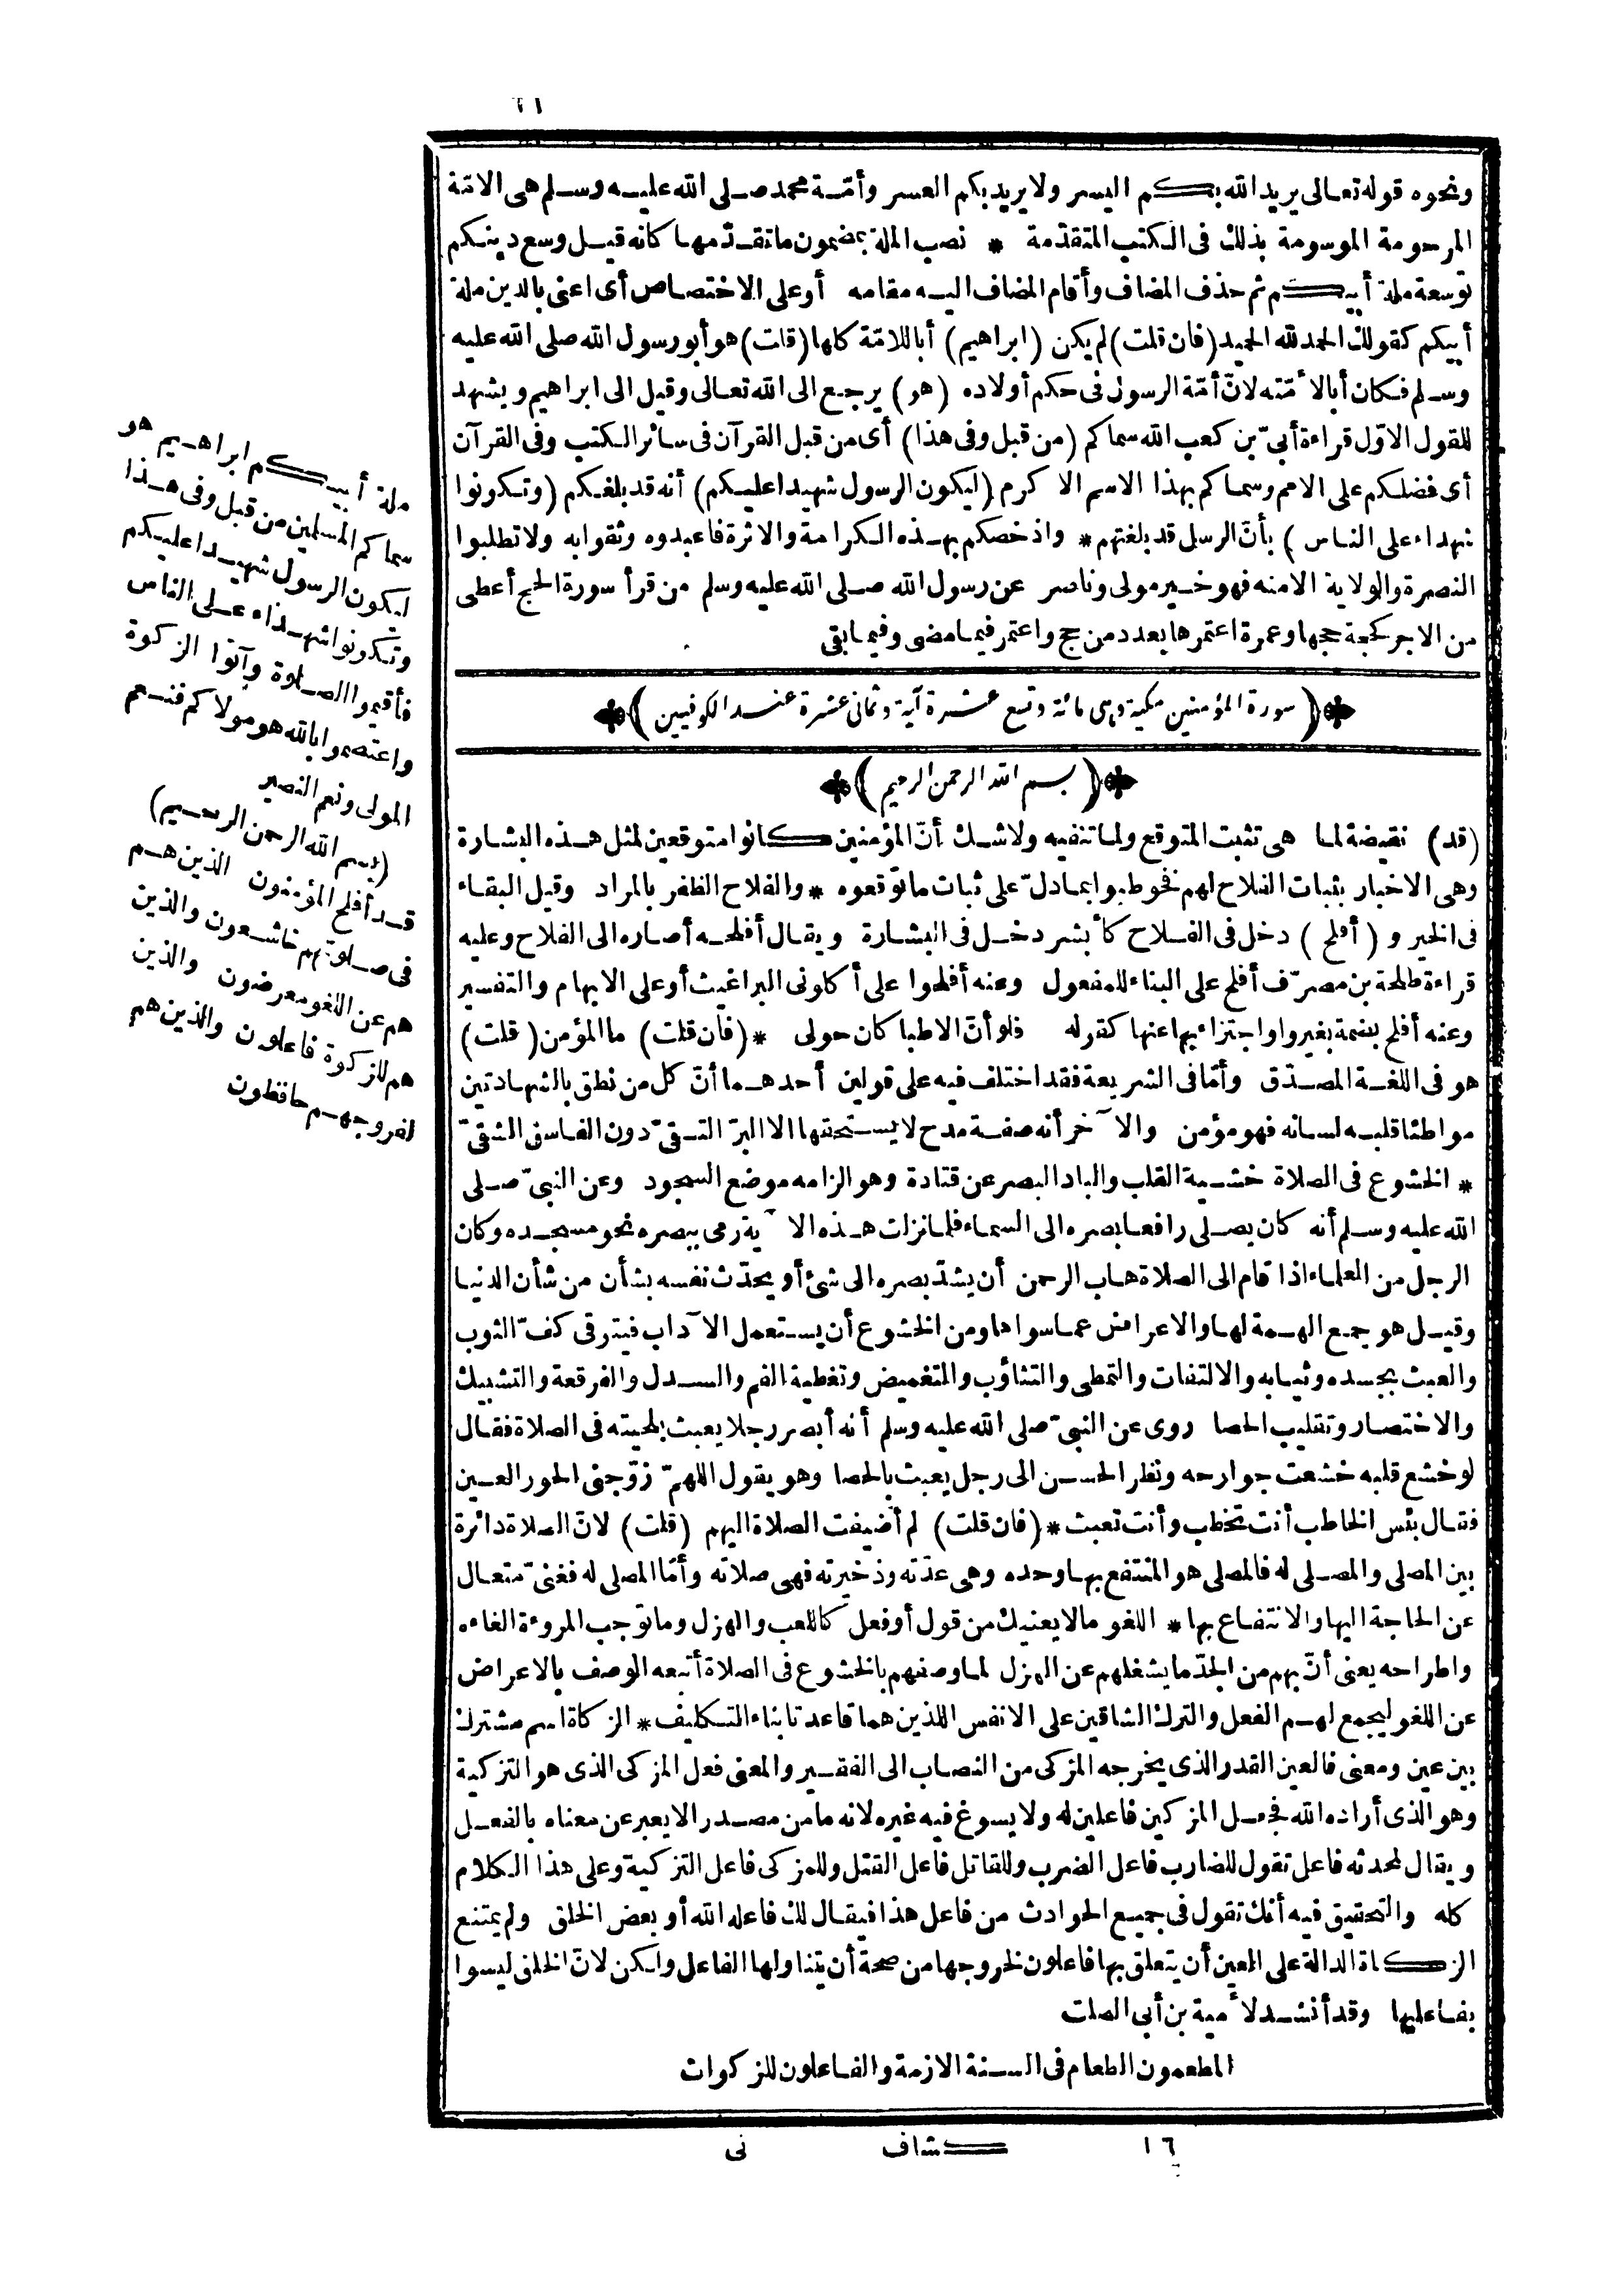 ٦١
ونحوه قوله تعالى يريد الله بكم اليسر ولا يريد بكم العسر وأمّة محمد صلى الله عليه وسلم هى الامّة
المرحومة الموسومة بذلك فى الكتب المتقدّمة * نصب الملة بمضمون ما تقدّمها كانه قيل وسع دينكم
توسعة ملة أبيكم ثم حذف المضاف وأقام المضاف اليه مقامه أو على الاختصاص أى اعنى بالدين ملة
أبيكم كقولك الحمد لله الحميد (فان قلت) لم يكن (ابراهيم) أبا للامّة كلها (قلت) هو أبو رسول الله صلى الله عليه
وسلم فكان أبا لأمّته لانّ أمّة الرسول فى حكم أولاده (هو) يرجع الى الله تعالى وقيل الى ابراهيم ويشهد
للقول الاوّل قراءة أبىّ بن كعب الله سماكم (من قبل وفى هذا) أى من قبل القرآن فى سائر الكتب وفى القرآن
أى فضلكم على الامم وسماكم بهذا الاسم الاكرم (ليكون الرسول شهيدا عليكم) أنه قد بلغكم (وتكونوا
شهداء على الناس) بأنّ الرسل قد بلغتهم * واذ خصكم بهذه الكرامة والاثرة فاعبدوه وثقوا به ولا تطلبوا
النصرة والولاية الا منه فهو خير مولى وناصر عن رسول الله صلى الله عليه وسلم من قرأ سورة الحج أعطى
من الاجر كحجة حجها وعمرة اعتمرها بعدد من حج واعتمر فيما مضى وفيما بقى
(سورة المؤمنين مكية وهى مائة وتسع عشرة آية وثمانى عشرة عند الكوفيين)
(بسم الله الرحمن الرحيم)
(قد) نقيضة لما هى تثبت المتوقع ولما تنفيه ولا شك أنّ المؤمنين كانوا متوقعين لمثل هذه البشارة
وهى الاخبار بثبات الفلاح لهم فخوطبوا بما دلّ على ثبات ما توقعوه * والفلاح الظفر بالمراد وقيل البقاء
فى الخير و (أفلح) دخل فى الفلاح كأبشر دخل فى البشارة ويقال أفلحه أصاره الى الفلاح وعليه
قراءة طلحة بن مصرّف أفلح على البناء للمفعول وعنه أفلحوا على أكلونى البراغيث أو على الابهام والتفسير
وعنه أفلح بضمة بغير واو اجتزاء بها عنها كقوله فلو أنّ الاطبا كان حولى * (فان قلت) ما المؤمن (قلت)
هو فى اللغة المصدّق وأمّا فى الشريعة فقد اختلف فيه على قولين أحدهما أنّ كل من نطق بالشهادتين
مواطئا قلبه لسانه فهو مؤمن والآخر أنه صفة مدح لا يستحقها الا البرّ التقىّ دون الفاسق الشقىّ
* الخشوع فى الصلاة خشية القلب والباد البصر عن قتادة وهو الزامه موضع السجود وعن النبىّ صلى
الله عليه وسلم أنه كان يصلى رافعا بصره الى السماء فلما نزلت هذه الآية رمى ببصره نحو مسجده وكان
الرجل من العلماء اذا قام الى الصلاة هاب الرحمن أن يشدّ بصره الى شئ أو يحدّث نفسه بشأن من شأن الدنيا
وقيل هو جمع الهمة لها والاعراض عما سواها ومن الخشوع أن يستعمل الآداب فيتوقى كفّ الثوب
والعبث بجسده وثيابه والالتفات والتمطى والتثاؤب والتغميض وتغطية الفم والسدل والفرقعة والتشبيك
والاختصار وتقليب الحصا روى عن النبىّ صلى الله عليه وسلم أنه أبصر رجلا يعبث بلحيته فى الصلاة فقال
لو خشع قلبه خشعت جوارحه ونظر الحسن الى رجل يعبث بالحصا وهو يقول اللهمّ زوّجنى الحور العين
فقال بئس الخاطب أنت تخطب وأنت تعبث * (فان قلت) لم أضيفت الصلاة اليهم (قلت) لانّ الصلاة دائرة
بين المصلى والمصلى له فالمصلى هو المنتفع بها وحده وهى عدّته وذخيرته فهى صلاته وأمّا المصلى له فغنىّ متعال
عن الحاجة اليها والانتفاع بها * اللغو ما لا يعنيك من قول أو فعل كاللعب والهزل وما توجب المروءة الغاءه
واطراحه يعنى أنّ بهم من الجدّ ما يشغلهم عن الهزل لما وصفهم بالخشوع فى الصلاة أتبعه الوصف بالاعراض
عن اللغو ليجمع لهم الفعل والترك الشاقين على الانفس اللذين هما قاعدتا بناء التكليف * الزكاة اسم مشترك
بين عين ومعنى فالعين القدر الذى يخرجه المزكى من النصاب الى الفقير والمعنى فعل المزكى الذى هو التزكية
وهو الذى أراده الله فجعل المزكين فاعلين له ولا يسوغ فيه غيره لانه ما من مصدر الا يعبر عن معناه بالفعل
ويقال لمحدثه فاعل تقول للضارب فاعل الضرب وللقاتل فاعل القتل وللمزكى فاعل التزكية وعلى هذا الكلام
كله والتحقيق فيه أنك تقول فى جميع الحوادث من فاعل هذا فيقال لك فاعله الله أو بعض الخلق ولم يمتنع
الزكاة الدالة على العين أن يتعلق بها فاعلون لخروجها من صحة أن يتناولها الفاعل ولكن لانّ الخلق ليسوا
بفاعليها وقد أنشد لأمية بن أبى الصلت
المطعمون الطعام فى السنة الازمة والفاعلون للزكوات
ملة أبيكم ابراهيم هو
سماكم المسلمين من قبل وفى هذا
ليكون الرسول شهيدا عليكم
وتكونوا شهداء على الناس
فأقيموا الصلوة وآتوا الزكوة
واعتصموا بالله هو مولاكم فنعم
المولى ونعم النصير
(بسم الله الرحمن الرحيم)
قد أفلح المؤمنون الذين هم
فى صلوتهم خاشعون والذين
هم عن اللغو معرضون والذين
هم للزكوة فاعلون والذين هم
لفروجهم حافظون
١٦ كشاف نى